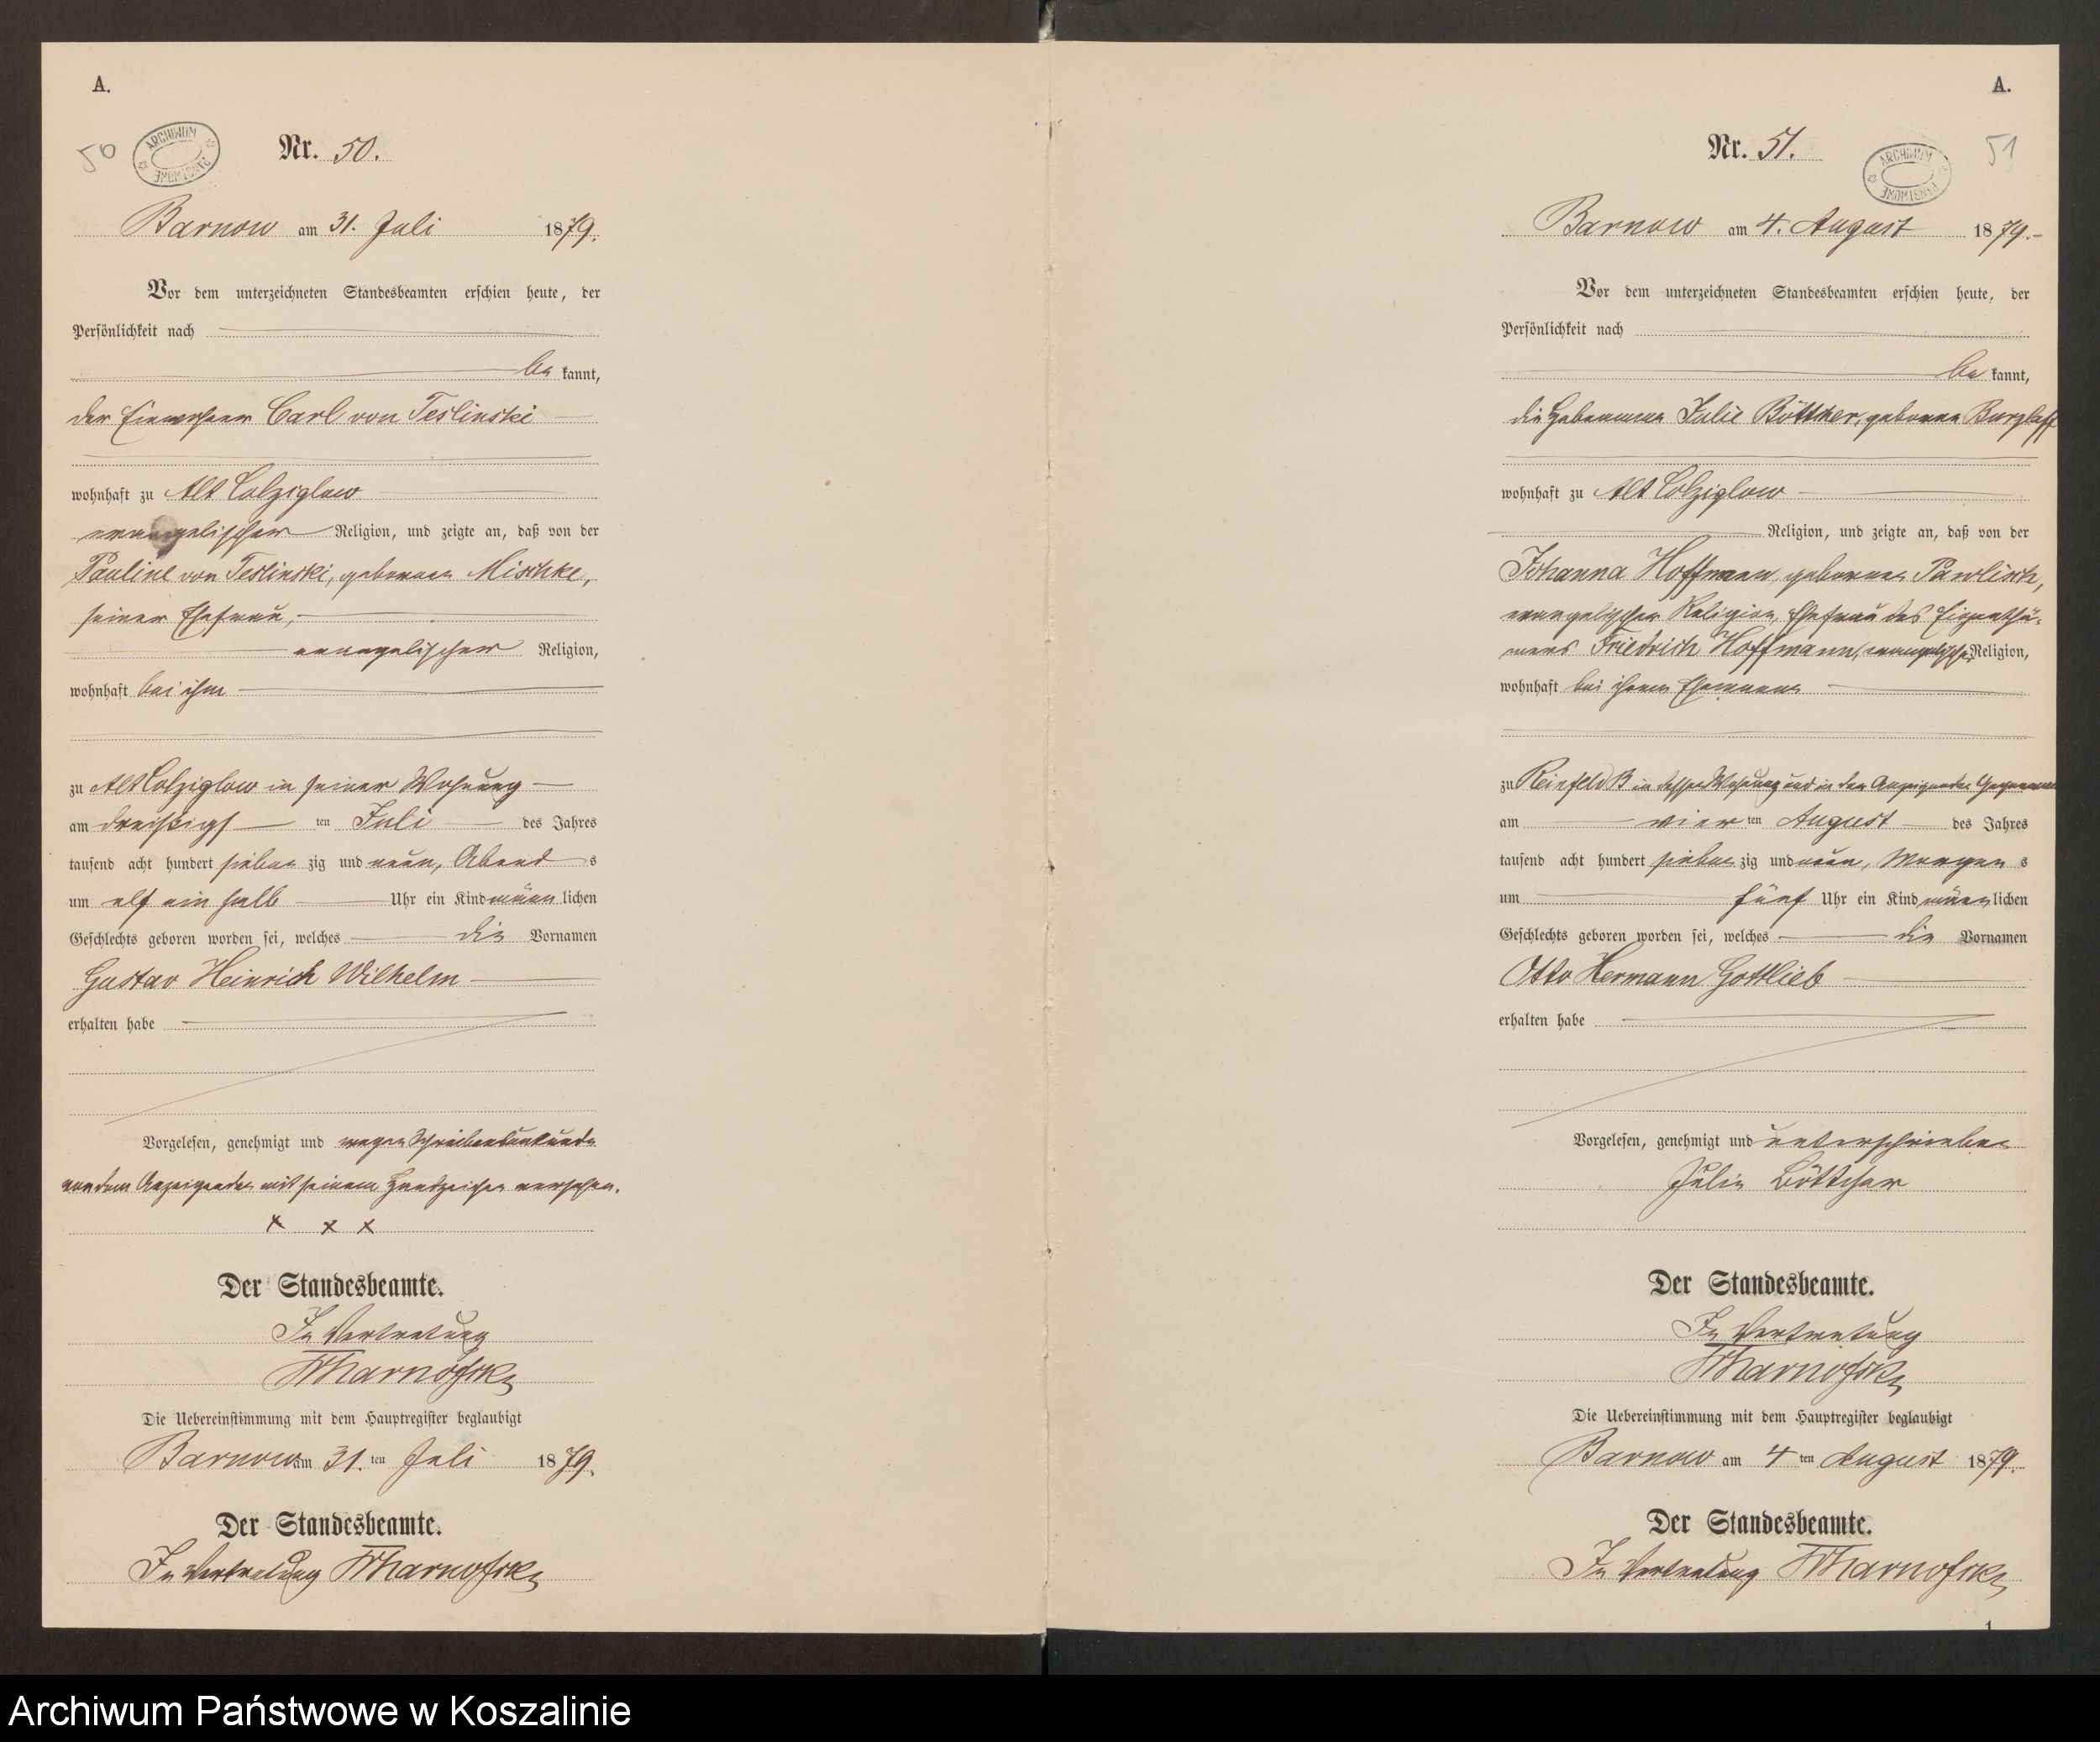 A.
50
ARCHIWUM PAŃSTWOWE
Nr. 50.
Barnow am 31. Juli 1879.
Vor dem unterzeichneten Standesbeamten erschien heute, der
Persönlichkeit nach
be kannt,
der Einwohner Carl von Teslinski
wohnhaft zu Alt Colziglow
evangelischer Religion, und zeigte an, daß von der
Pauline von Teslinski, geborenen Mischke,
seiner Ehefrau,
evangelischer Religion,
wohnhaft bei ihm
zu Alt Colziglow in seiner Wohnung
am dreißigs ten Juli des Jahres
tausend acht hundert sieben zig und neun, Abend s
um elf ein halb Uhr ein Kind männ lichen
Geschlechts geboren worden sei, welches die Vornamen
Gustav Heinrich Wilhelm
erhalten habe
Vorgelesen, genehmigt und wegen Schreibensunkunde
von dem Anzeigenden mit seinem Handzeichen versehen.
x x x
Der Standesbeamte.
In Vertretung
Die Uebereinstimmung mit dem Hauptregister beglaubigt
Barnow am 31. ten Juli 1879.
Der Standesbeamte.
In Vertretung
A.
51
ARCHIWUM PAŃSTWOWE
Nr. 51.
Barnow am 4. August 1879.
Vor dem unterzeichneten Standesbeamten erschien heute, der
Persönlichkeit nach
be kannt,
die Hebamme Julie Böttcher, geborene Burzlaff
wohnhaft zu Alt Colziglow
Religion, und zeigte an, daß von der
Johanna Hoffmann, geborenen Pawlisch,
evangelischer Religion, Ehefrau des Eigenthü-
mers Friedrich Hoffmann, evangelischer Religion,
wohnhaft bei ihrem Ehemann
zu Reinfeld B in dessen Wohnung und in der Anzeigenden Gegenwart
am vier ten August des Jahres
tausend acht hundert sieben zig und neun, Morgen s
um fünf Uhr ein Kind männ lichen
Geschlechts geboren worden sei, welches die Vornamen
Otto Hermann Gottlieb
erhalten habe
Vorgelesen, genehmigt und unterschrieben
Julie Böttcher
Der Standesbeamte.
In Vertretung
Die Uebereinstimmung mit dem Hauptregister beglaubigt
Barnow am 4 ten August 1879.
Der Standesbeamte.
In Vertretung
1
Archiwum Państwowe w Koszalinie